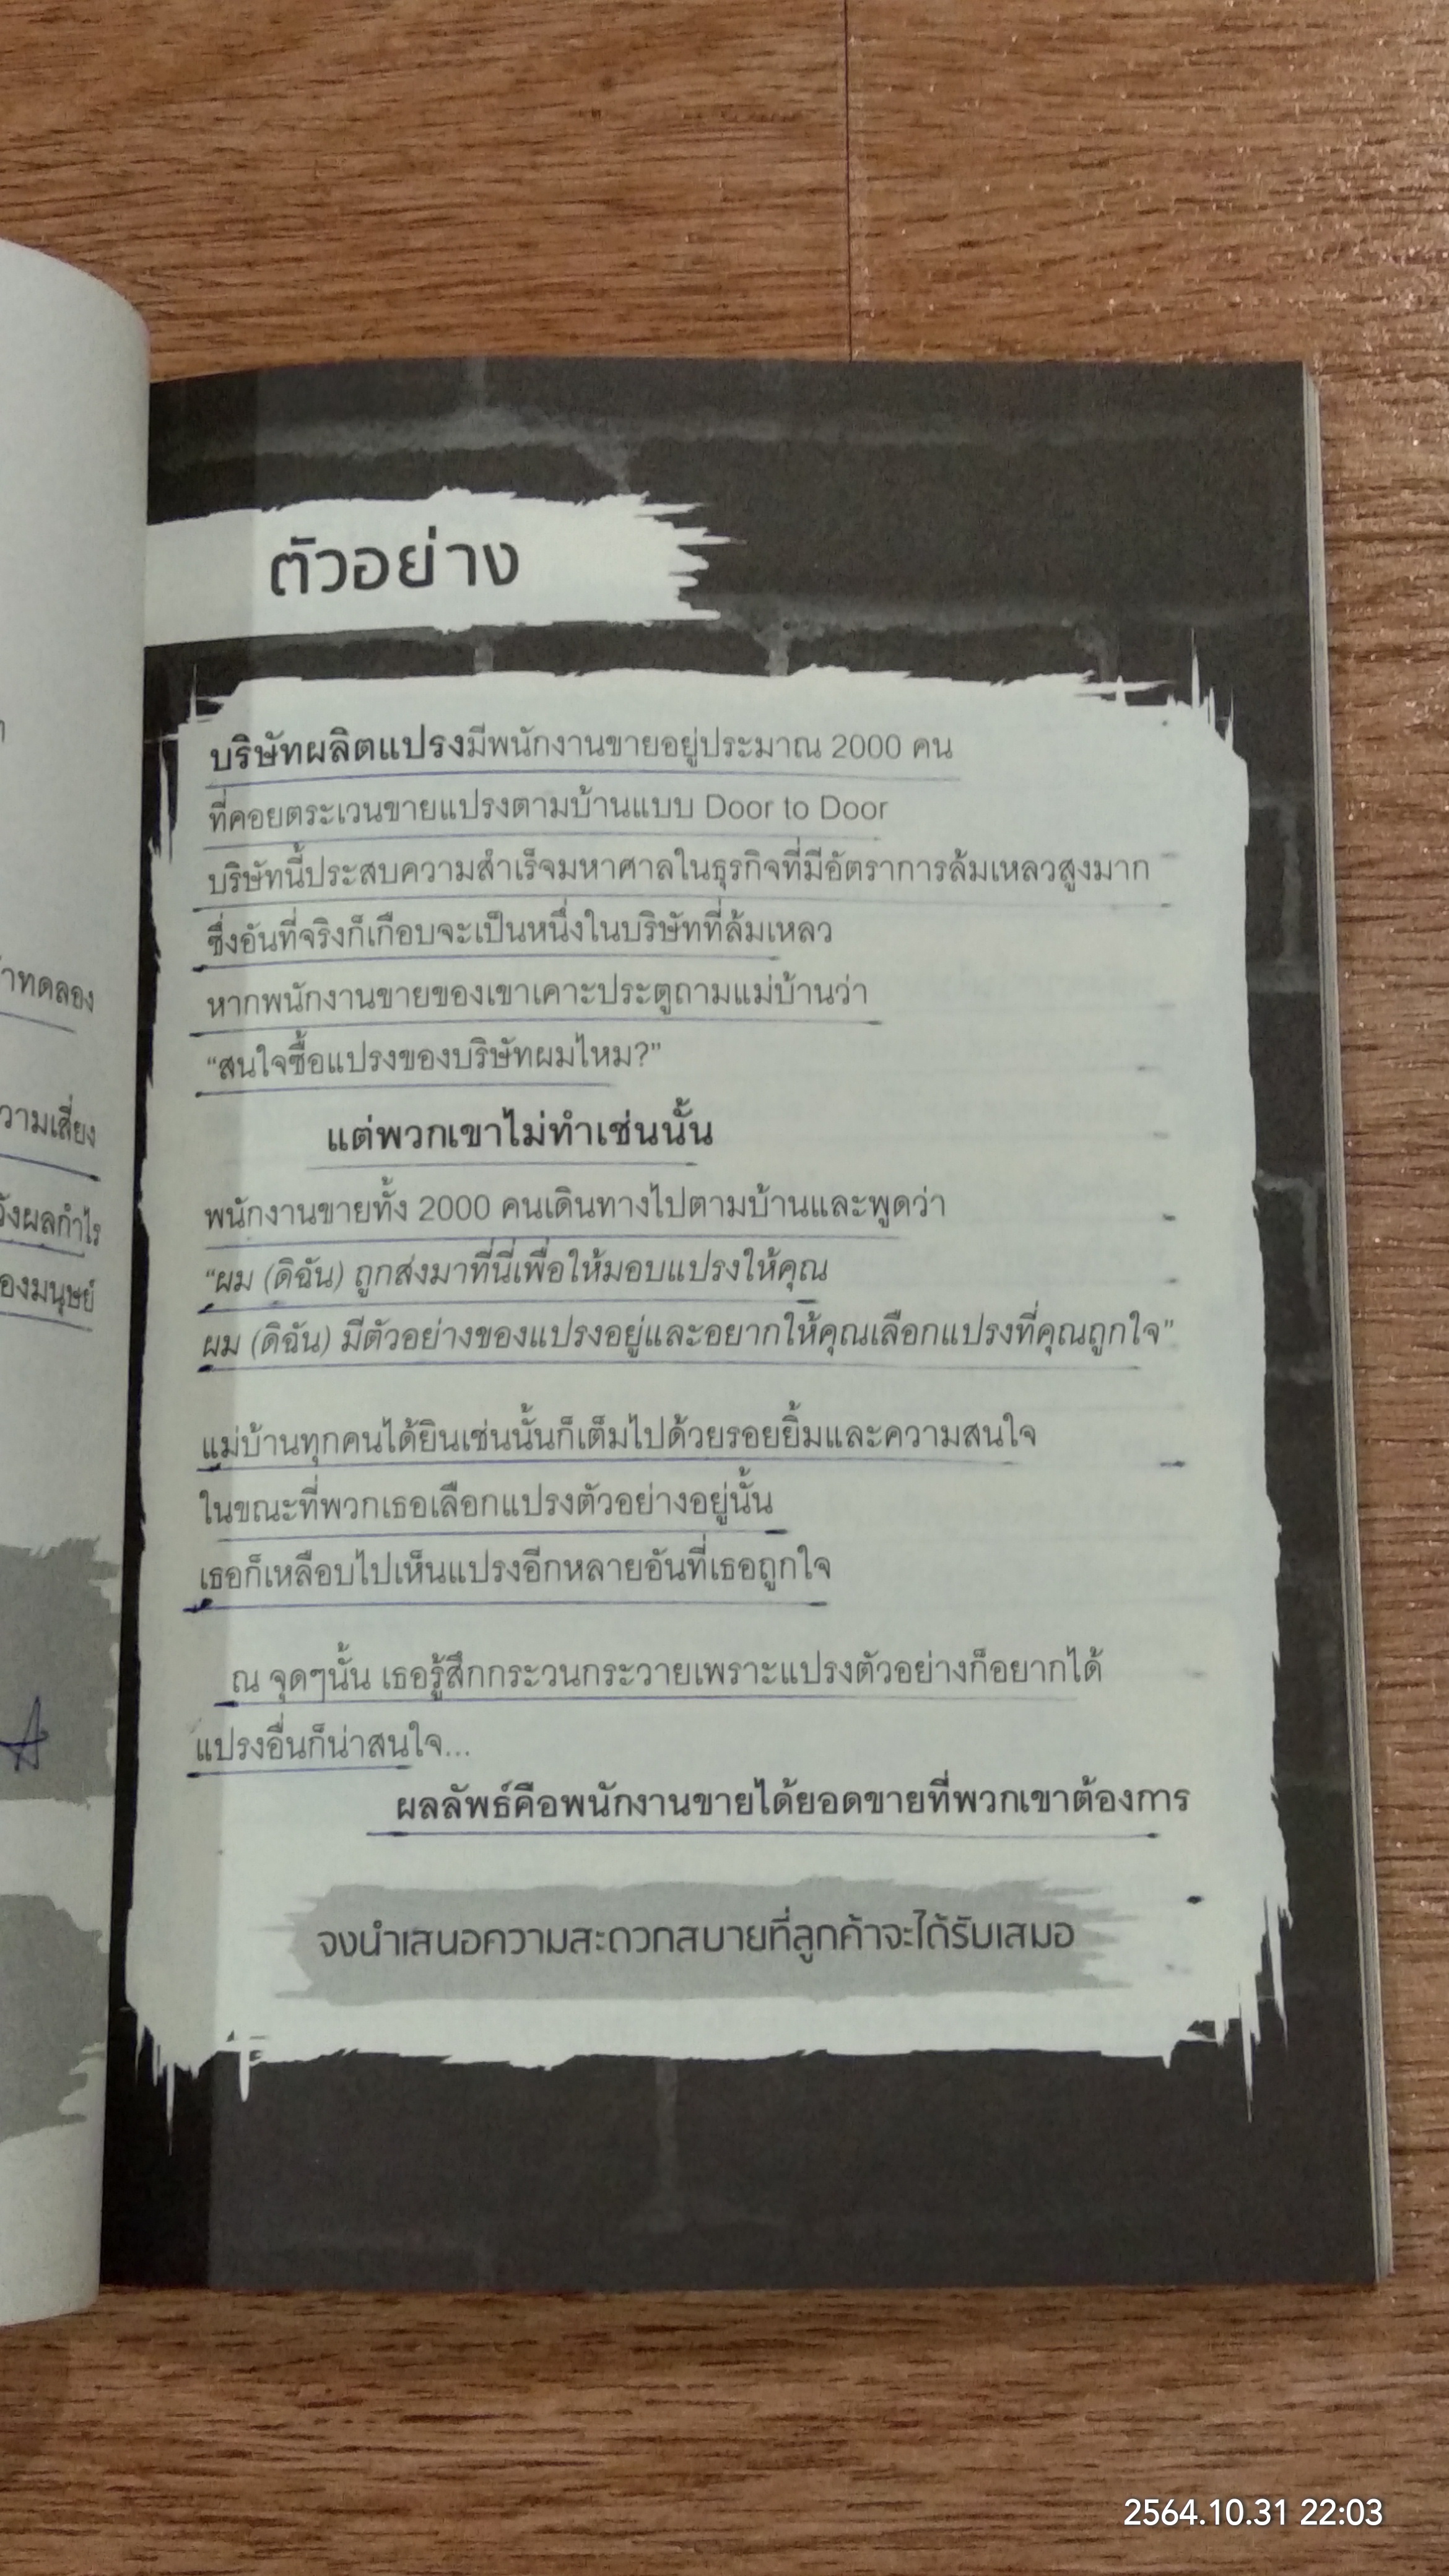 ตัวอย่าง
บริษัทผลิตแปรงมีพนักงานขายอยู่ประมาณ 2000 คน
ที่คอยตระเวนขายแปรงตามบ้านแบบ Door to Door
บริษัทนี้ประสบความสำเร็จมหาศาลในธุรกิจที่มีอัตราการล้มเหลวสูงมาก
ซึ่งอันที่จริงก็เกือบจะเป็นหนึ่งในบริษัทที่ล้มเหลว
หากพนักงานขายของเขาเคาะประตูถามแม่บ้านว่า
“สนใจซื้อแปรงของบริษัทผมไหม?”
แต่พวกเขาไม่ทำเช่นนั้น
พนักงานขายทั้ง 2000 คนเดินทางไปตามบ้านและพูดว่า
“ผม (ดิฉัน) ถูกส่งมาที่นี่เพื่อให้มอบแปรงให้คุณ
ผม (ดิฉัน) มีตัวอย่างของแปรงอยู่และอยากให้คุณเลือกแปรงที่คุณถูกใจ”
แม่บ้านทุกคนได้ยินเช่นนั้นก็เต็มไปด้วยรอยยิ้มและความสนใจ
ในขณะที่พวกเธอเลือกแปรงตัวอย่างอยู่นั้น
เธอก็เหลือบไปเห็นแปรงอีกหลายอันที่เธอถูกใจ
ณ จุดๆนั้น เธอรู้สึกกระวนกระวายเพราะแปรงตัวอย่างก็อยากได้
แปรงอื่นก็น่าสนใจ...
ผลลัพธ์คือพนักงานขายได้ยอดขายที่พวกเขาต้องการ
จงนำเสนอความสะดวกสบายที่ลูกค้าจะได้รับเสมอ
ทดลอง
ความเสี่ยง
ผลกำไร
ของมนุษย์
2564.10.31 22:03